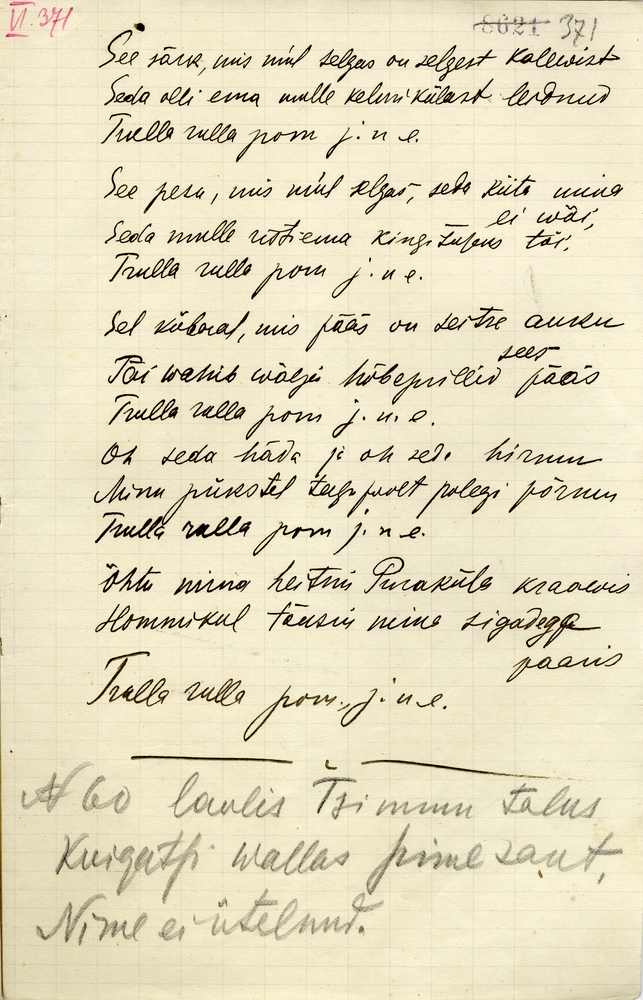 VI. 371
8621 371
See särk, mis miul selgas on selgest kalewist
Seda olli ema mulle kelmi külast leidnud
Trulla rulla pom j. n e.
See pesu, mis miul selgas, seda kiita mina
ei wõi,
Seda mulle ristiema kingituses tõi.
Trulla rulla pom j. n e.
Sel kübaral, mis pääs on seitse auku
sees
Täi wahib wälja hõbeprillid pääs
Trulla rulla pom j. n. e.
Oh seda häda ja oh seda hirmu
Minu pükstel tagapoolt polegi põrmu
Trulla rulla pom j. n e.
Õhtu mina heitsin Puraküla kraawis
Hommikul tõusin mina sigadega
paaris
Trulla rulla pom, j. n e.
N 60 laulis Tsimmu talus
Kuigatsi wallas pime sant,
Nime ei ütelnud.